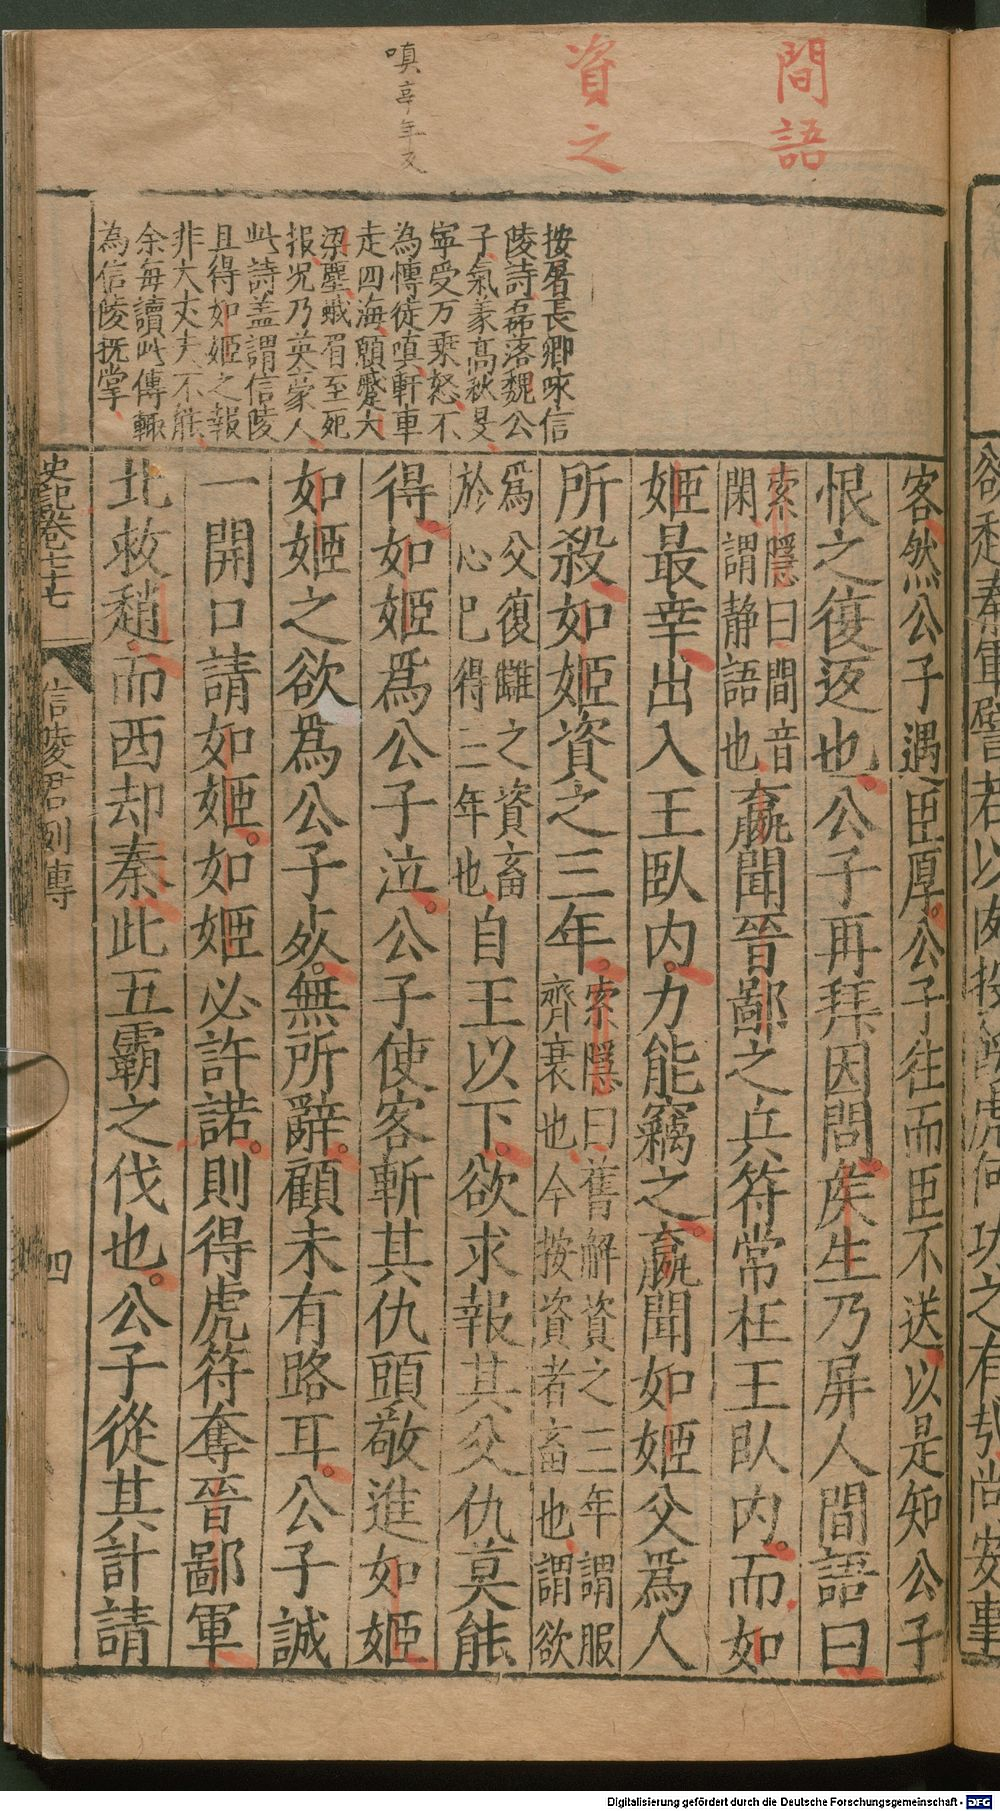 間語
資之
嗔
按屠長卿咏信
陵詩磊落魏公
子氣豪高秋旻
寧受万乘怒不
為博徒嗔軒車
走四海願蹙大
梁塵蛾眉至死
报况乃英豪人
此詩盖謂信陵
且得如姬之報
非大丈夫不能
余每讀此傳輙
為信陵抚掌
客然公子遇臣厚公子往而臣不送以是知公子
恨之復返也公子再拜因問矦生乃屏人間語曰
索隱曰間音
閑謂静語也
嬴聞晉鄙之兵符常在王臥内而如
姬最幸出入王臥内力能竊之嬴聞如姬父爲人
所殺如姬資之三年
索隱曰舊解資之三年謂服
齊衰也今按資者畜也謂欲
爲父復讎之資畜
於心已得三年也
自王以下欲求報其父仇莫能
得如姬爲公子泣公子使客斬其仇頭敬進如姬
如姬之欲爲公子死無所辭顧未有路耳公子誠
一開口請如姬如姬必許諾則得虎符奪晉鄙軍
北救趙而西却秦此五霸之伐也公子從其計請
史記卷七十七
信陵君列傳
四
Digitalisierung gefördert durch die Deutsche Forschungsgemeinschaft - DFG